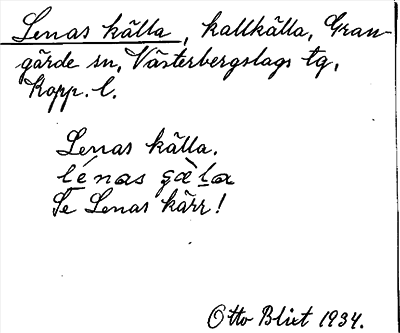 Lenas källa, kallkälla, Gran-
gärde sn, Västerbergslags tg,
Kopp. l.
Lenas källa.
Se Lenas kärr!
Otto Blixt 1934.